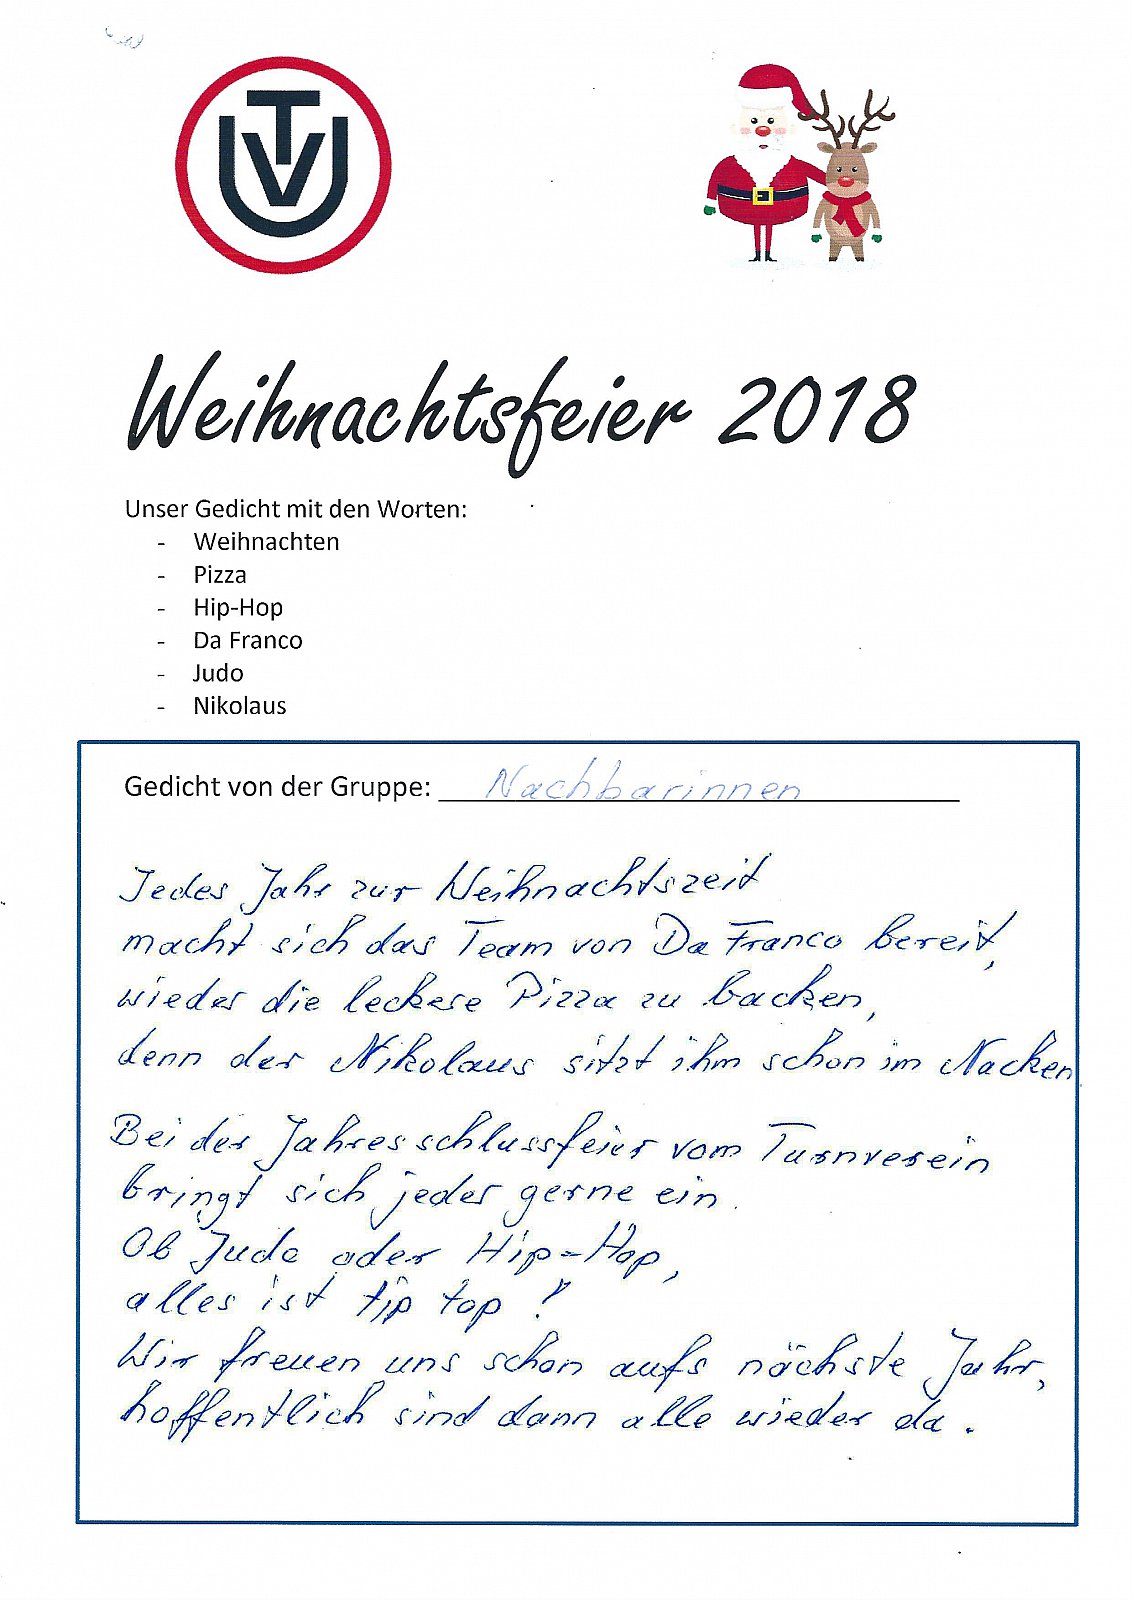 TVU
Weihnachtsfeier 2018
Unser Gedicht mit den Worten:
- Weihnachten
- Pizza
- Hip-Hop
- Da Franco
- Judo
- Nikolaus
Gedicht von der Gruppe: Nachbarinnen
Jedes Jahr zur Weihnachtszeit
macht sich das Team von Da Franco bereit,
wieder die leckere Pizza zu backen,
denn der Nikolaus sitzt ihm schon im Nacken
Bei der Jahresschlussfeier vom Turnverein
bringt sich jeder gerne ein.
Ob Judo oder Hip-Hop,
alles ist tip top!
Wir freuen uns schon aufs nächste Jahr,
hoffentlich sind dann alle wieder da.